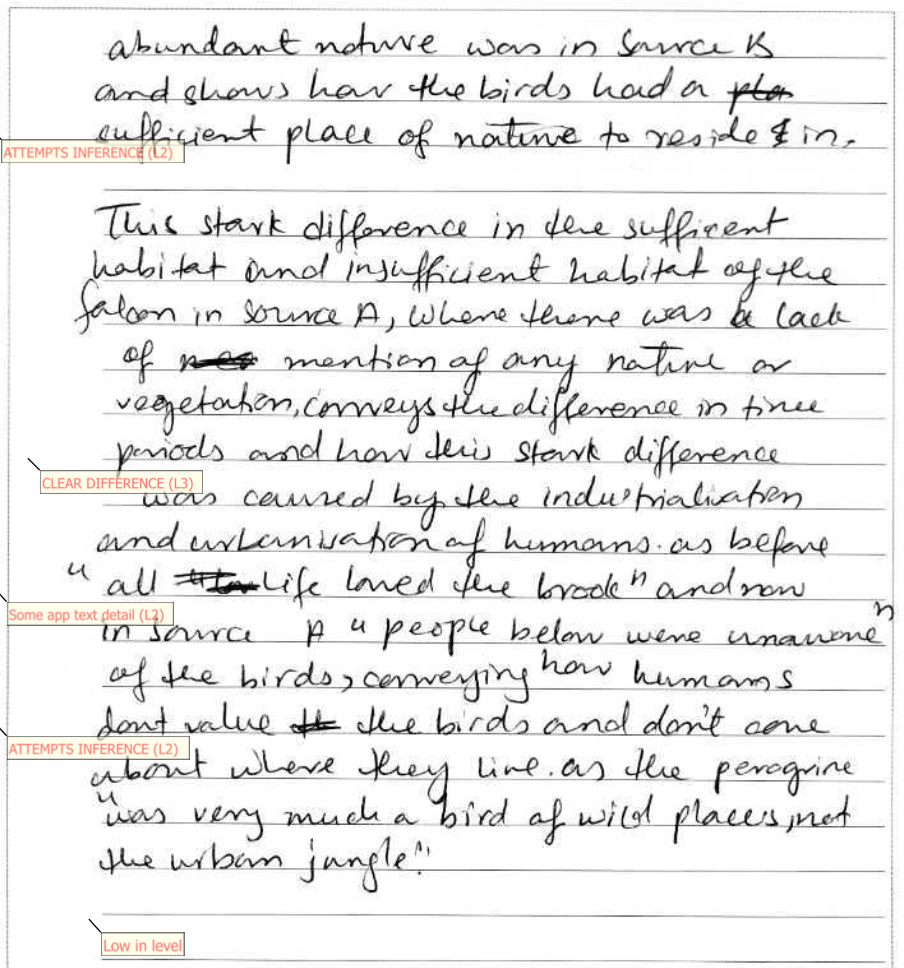 abundant nature was in Source B
and shows how the birds had a pla
sufficient place of nature to reside in.
ATTEMPTS INFERENCE (L2)
This stark difference in the sufficent
habitat and insufficient habitat of the
falcon in source A, where there was a lack
of mention of any nature or
vegetation, conveys the difference in time
periods and how this stark difference
CLEAR DIFFERENCE (L3)
was caused by the industrialisation
and urbanisation of humans. as before
"all Life loved the brook" and now
Some app text detail (L2)
in source A "people below were unaware"
of the birds, conveying how humans
dont value the birds and don't care
ATTEMPTS INFERENCE (L2)
about where they live. as the peregrine
"was very much a bird of wild places, not
the urban jungle".
Low in level